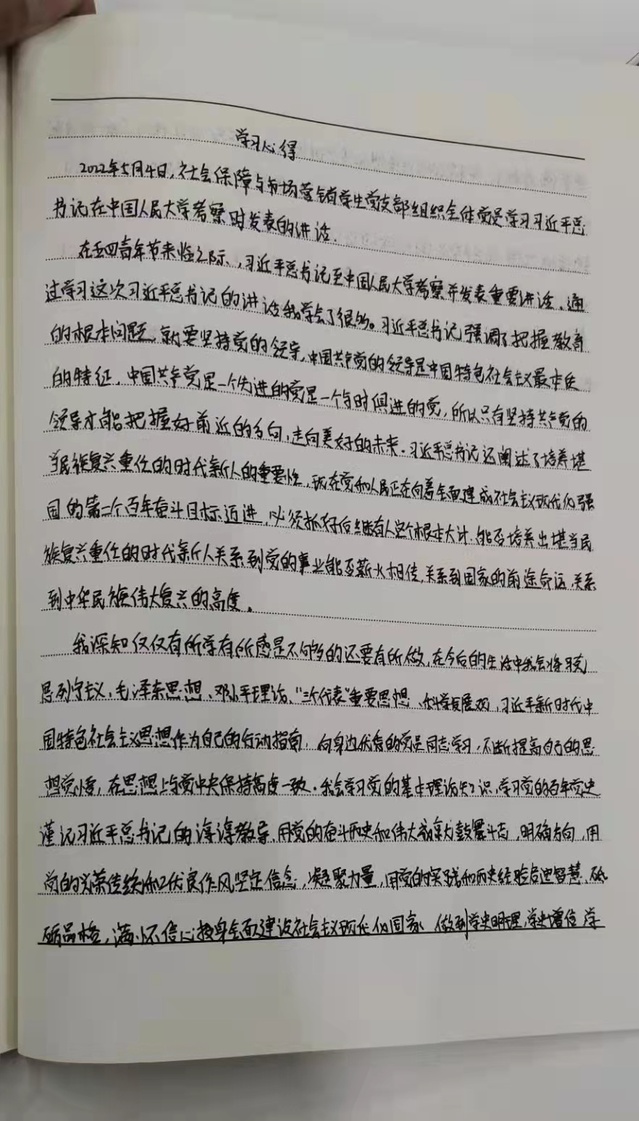 学习心得
2022年5月4日,社会保障与市场营销学生党支部组织全体党员学习习近平总
书记在中国人民大学考察时发表的讲话.
在五四青年节来临之际、习近平总书记至中国人民大学考察并发表重要讲话。通
过学习这次习近平总书记的讲话我学会了很多。习近平总书记强调了把握教育
的根本问题,就要坚持党的领导,中国共产党的领导是中国特色社会主义最本质
的特征,中国共产党是一个先进的党是一个与时俱进的党,所以只有坚持共产党的
领导才能把握好前进的方向,走向美好的未来.习近平总书记还阐述了培养堪
当民族复兴重任的时代新人的重要性,现在党和人民正在向着全面建成社会主义现代化强
国的第二个百年奋斗目标迈进,必须抓好后继有人这个根本大计.能否培养出堪当民
族复兴重任的时代新人关系到党的事业能否薪火相传,关系到国家的前途命运,关系
到中华民族伟大复兴的高度。
我深知仅仅有所学有所感是不够的还要有所做,在今后的生活中我会将马克
思列宁主义,毛泽东思想、邓小平理论,“三个代表”重要思想、科学发展观,习近平新时代中
国特色社会主义思想作为自己的行动指南,向身边优秀的党员同志学习,不断提高自己的思
想觉悟,在思想上与党中央保持高度一致.我会学习党的基本理论知识,学习党的百年党史
谨记习近平总书记的谆谆教导,用党的奋斗历史和伟大成就鼓舞斗志,明确方向,用
党的光荣传统和优良作风坚定信念,凝聚力量,用党的实践和历史经验启迪智慧,砥
砺品格,满怀信心投身全面建设社会主义现代化国家、做到学史明理,学史增信,学